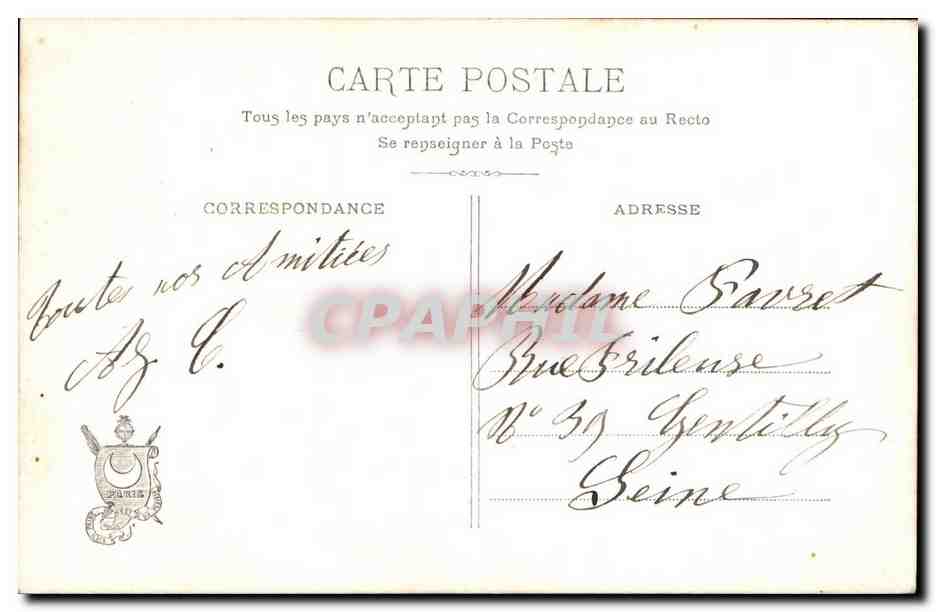 CARTE POSTALE
Tous les pays n'acceptent pas la Correspondance au Recto
Se renseigner à la Poste
CORRESPONDANCE
ADRESSE
Toutes nos Amitiées
Madame Favret
Rue Frileuse
N° 39 Gentilly
Seine
CPAPHIL
PARIS